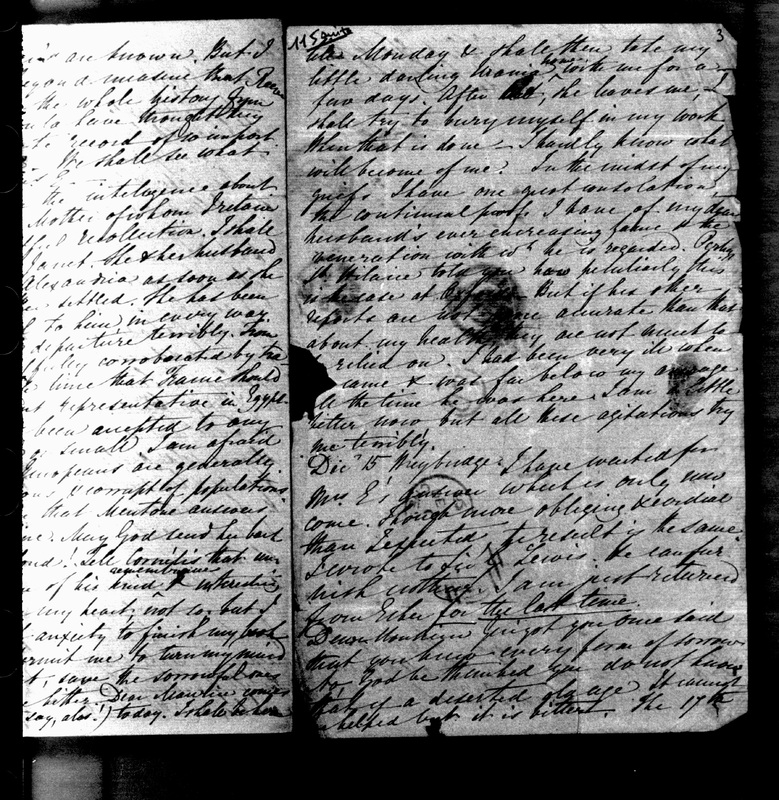 are known. But I
upon a measure that
the whole history from
to have thought they
record of so import
We shall see what
the intelligence about
Mother of whom I retain
recollection. I shall
Janet. She & her husband
Alexandria as soon as the
settled. He has been
to him in every way
departure terribly. From
fully corroborated by
time that France should
representative in Egypt
been accepted to any
small. I am afraid
Europeans are generally
& corrupt of populations
that Mentone answers
May God send her back
Tell that
of his kind remembrance & interest
my heart, not so, but I
anxiety to finish my book
permit me to turn my mind
, save the sorrowful ones
bitter. Dear Maurice comes
say, alas!) today. I shall
115
3
till Monday & shall then take my
little darling home with me for a
few days. After that, she leaves me, I
shall try to bury myself in my work
When that is done I hardly know what
will become of me. In the midst of my
griefs I have one great consolation,
the continual proofs I have of my dear
husband's ever increasing fame & the
veneration with wh. he is regarded. Perhaps
St Hilaire told you how peculiarly this
is the case at Oxford. But if his other
reports are not more accurate than that
about my health they are not much to
be relied on. I had been very ill when
he came & was far below my average
all the time he was here. I am a little
better now but all these agitations try
me terribly.
Decr 15 Weybridge. I have waited for
Mrs E's answer which is only now
come. Though more obliging & cordial
than I expected the result is the same.
I wrote to Sir Lewis. He can fur
nish nothing. I am just returned
from Esher for the last time.
Dear Monsieur Guigot you once said
that you knew every form of sorrow
to God be thanked you do not know
that of a deserted old age. It cannot
be helped but it is bitter. The 17th